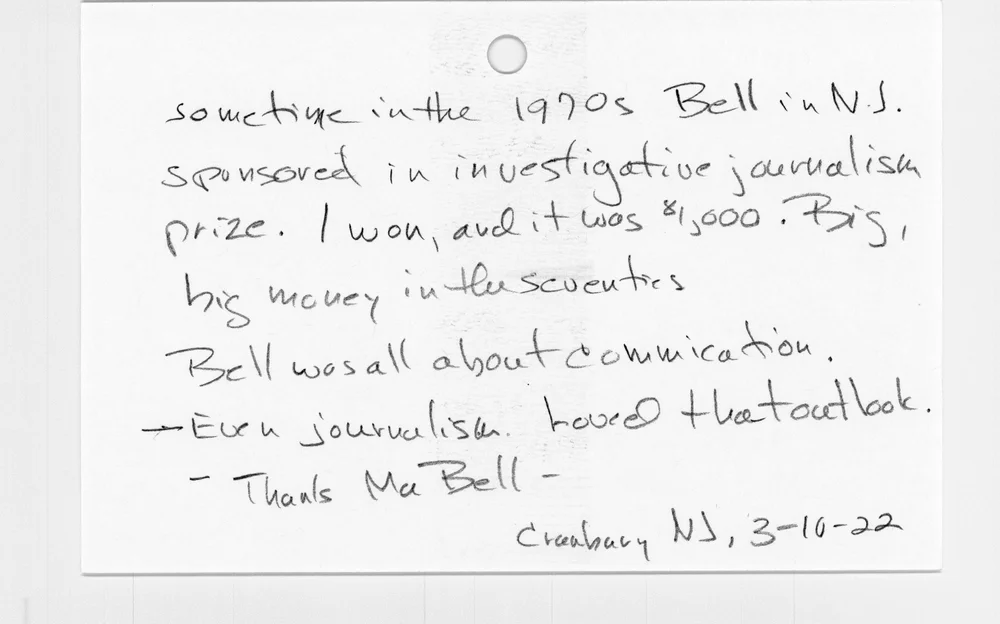 sometime in the 1970s Bell in N.J.
sponsored in investigative journalism
prize. I won, and it was $1,000. Big,
big money in the seventies
Bell was all about commication.
→ Even journalism. Loved that outlook.
- Thanks Ma Bell -
Cranbury NJ, 3-10-22